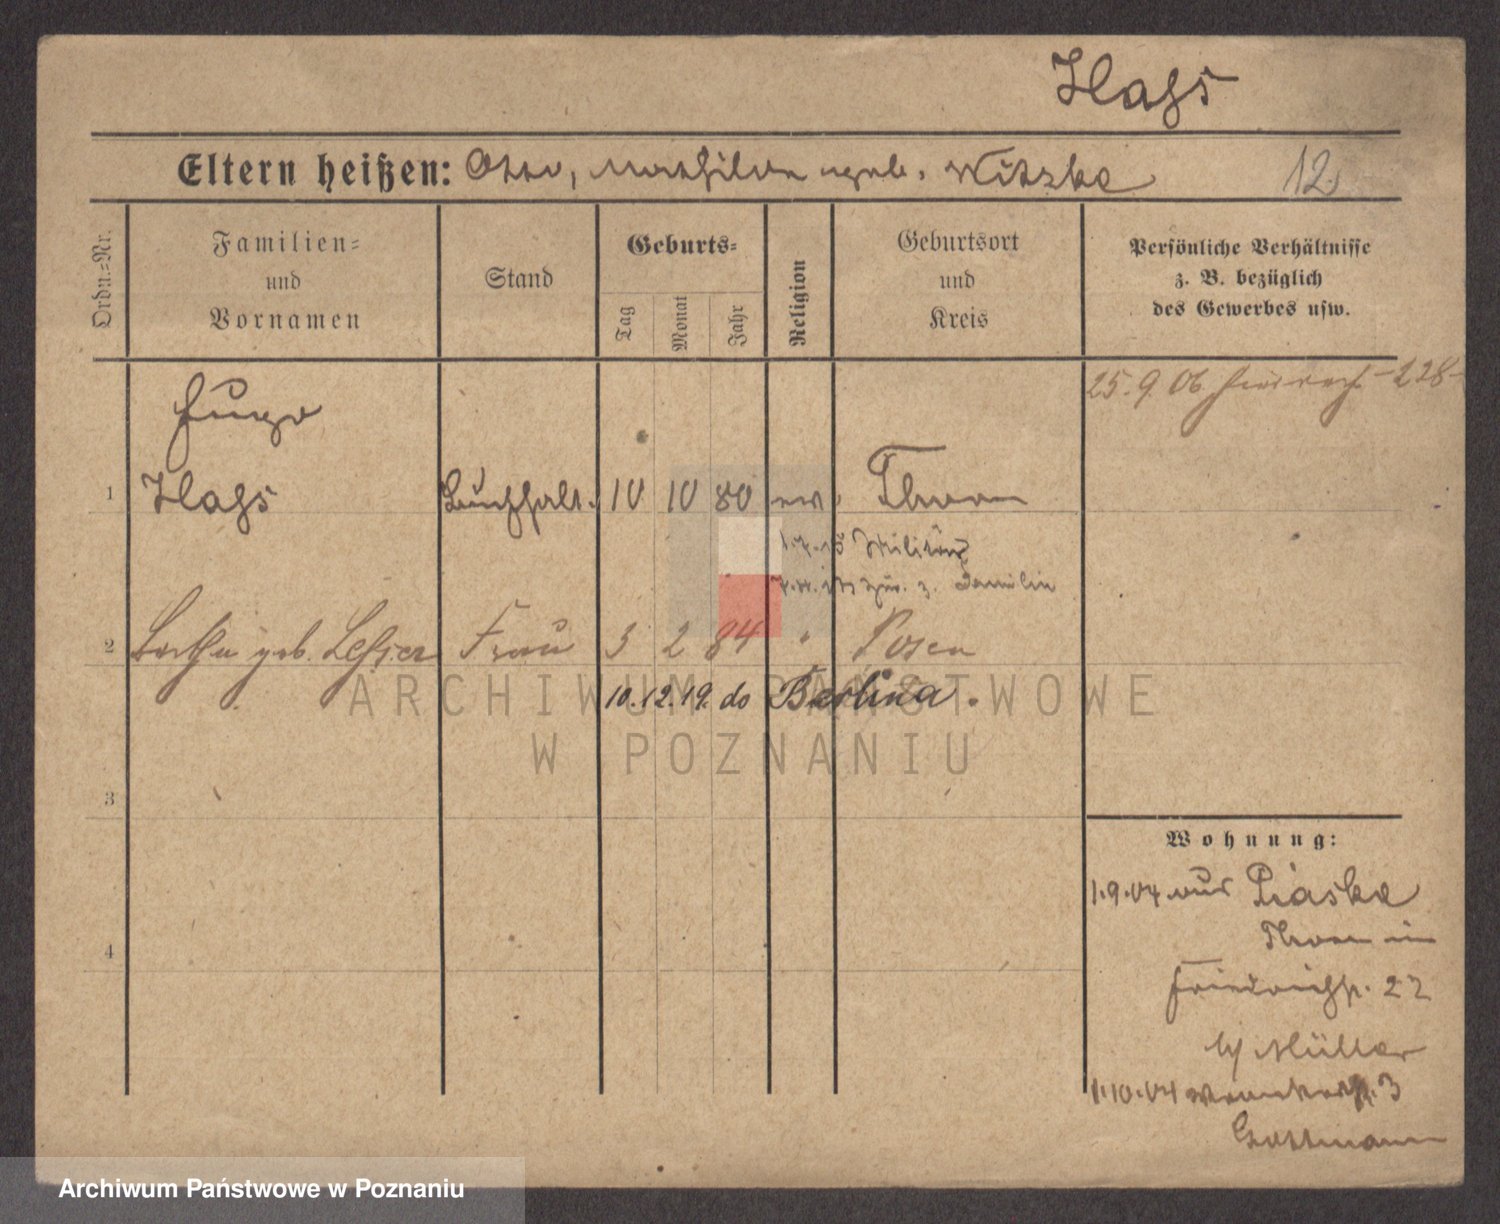 Hahs
Eltern heißen: Otto, Mathilde geb. Witzke 12.
Ordn.-Nr.
Familien-
und
Vornamen
Stand
Geburts-
Tag
Monat
Jahr
Religion
Geburtsort
und
Kreis
Persönliche Verhältnisse
z. B. bezüglich
des Gewerbes usw.
25.9.06 228
Hugo
1 Hahs Buchhalt. 10 10 80 ev. Thorn
Militär
z. Familie
2 geb. Frau 3 2 84 " Posen
10.12.19. do Berlina.
3
Wohnung:
1.9.04 aus Piaske
Thorn in
4
Friedrichstr. 22
b/ Müller
1.10.04 3
Gottmann
ARCHIWUM PAŃSTWOWE
W POZNANIU
Archiwum Państwowe w Poznaniu